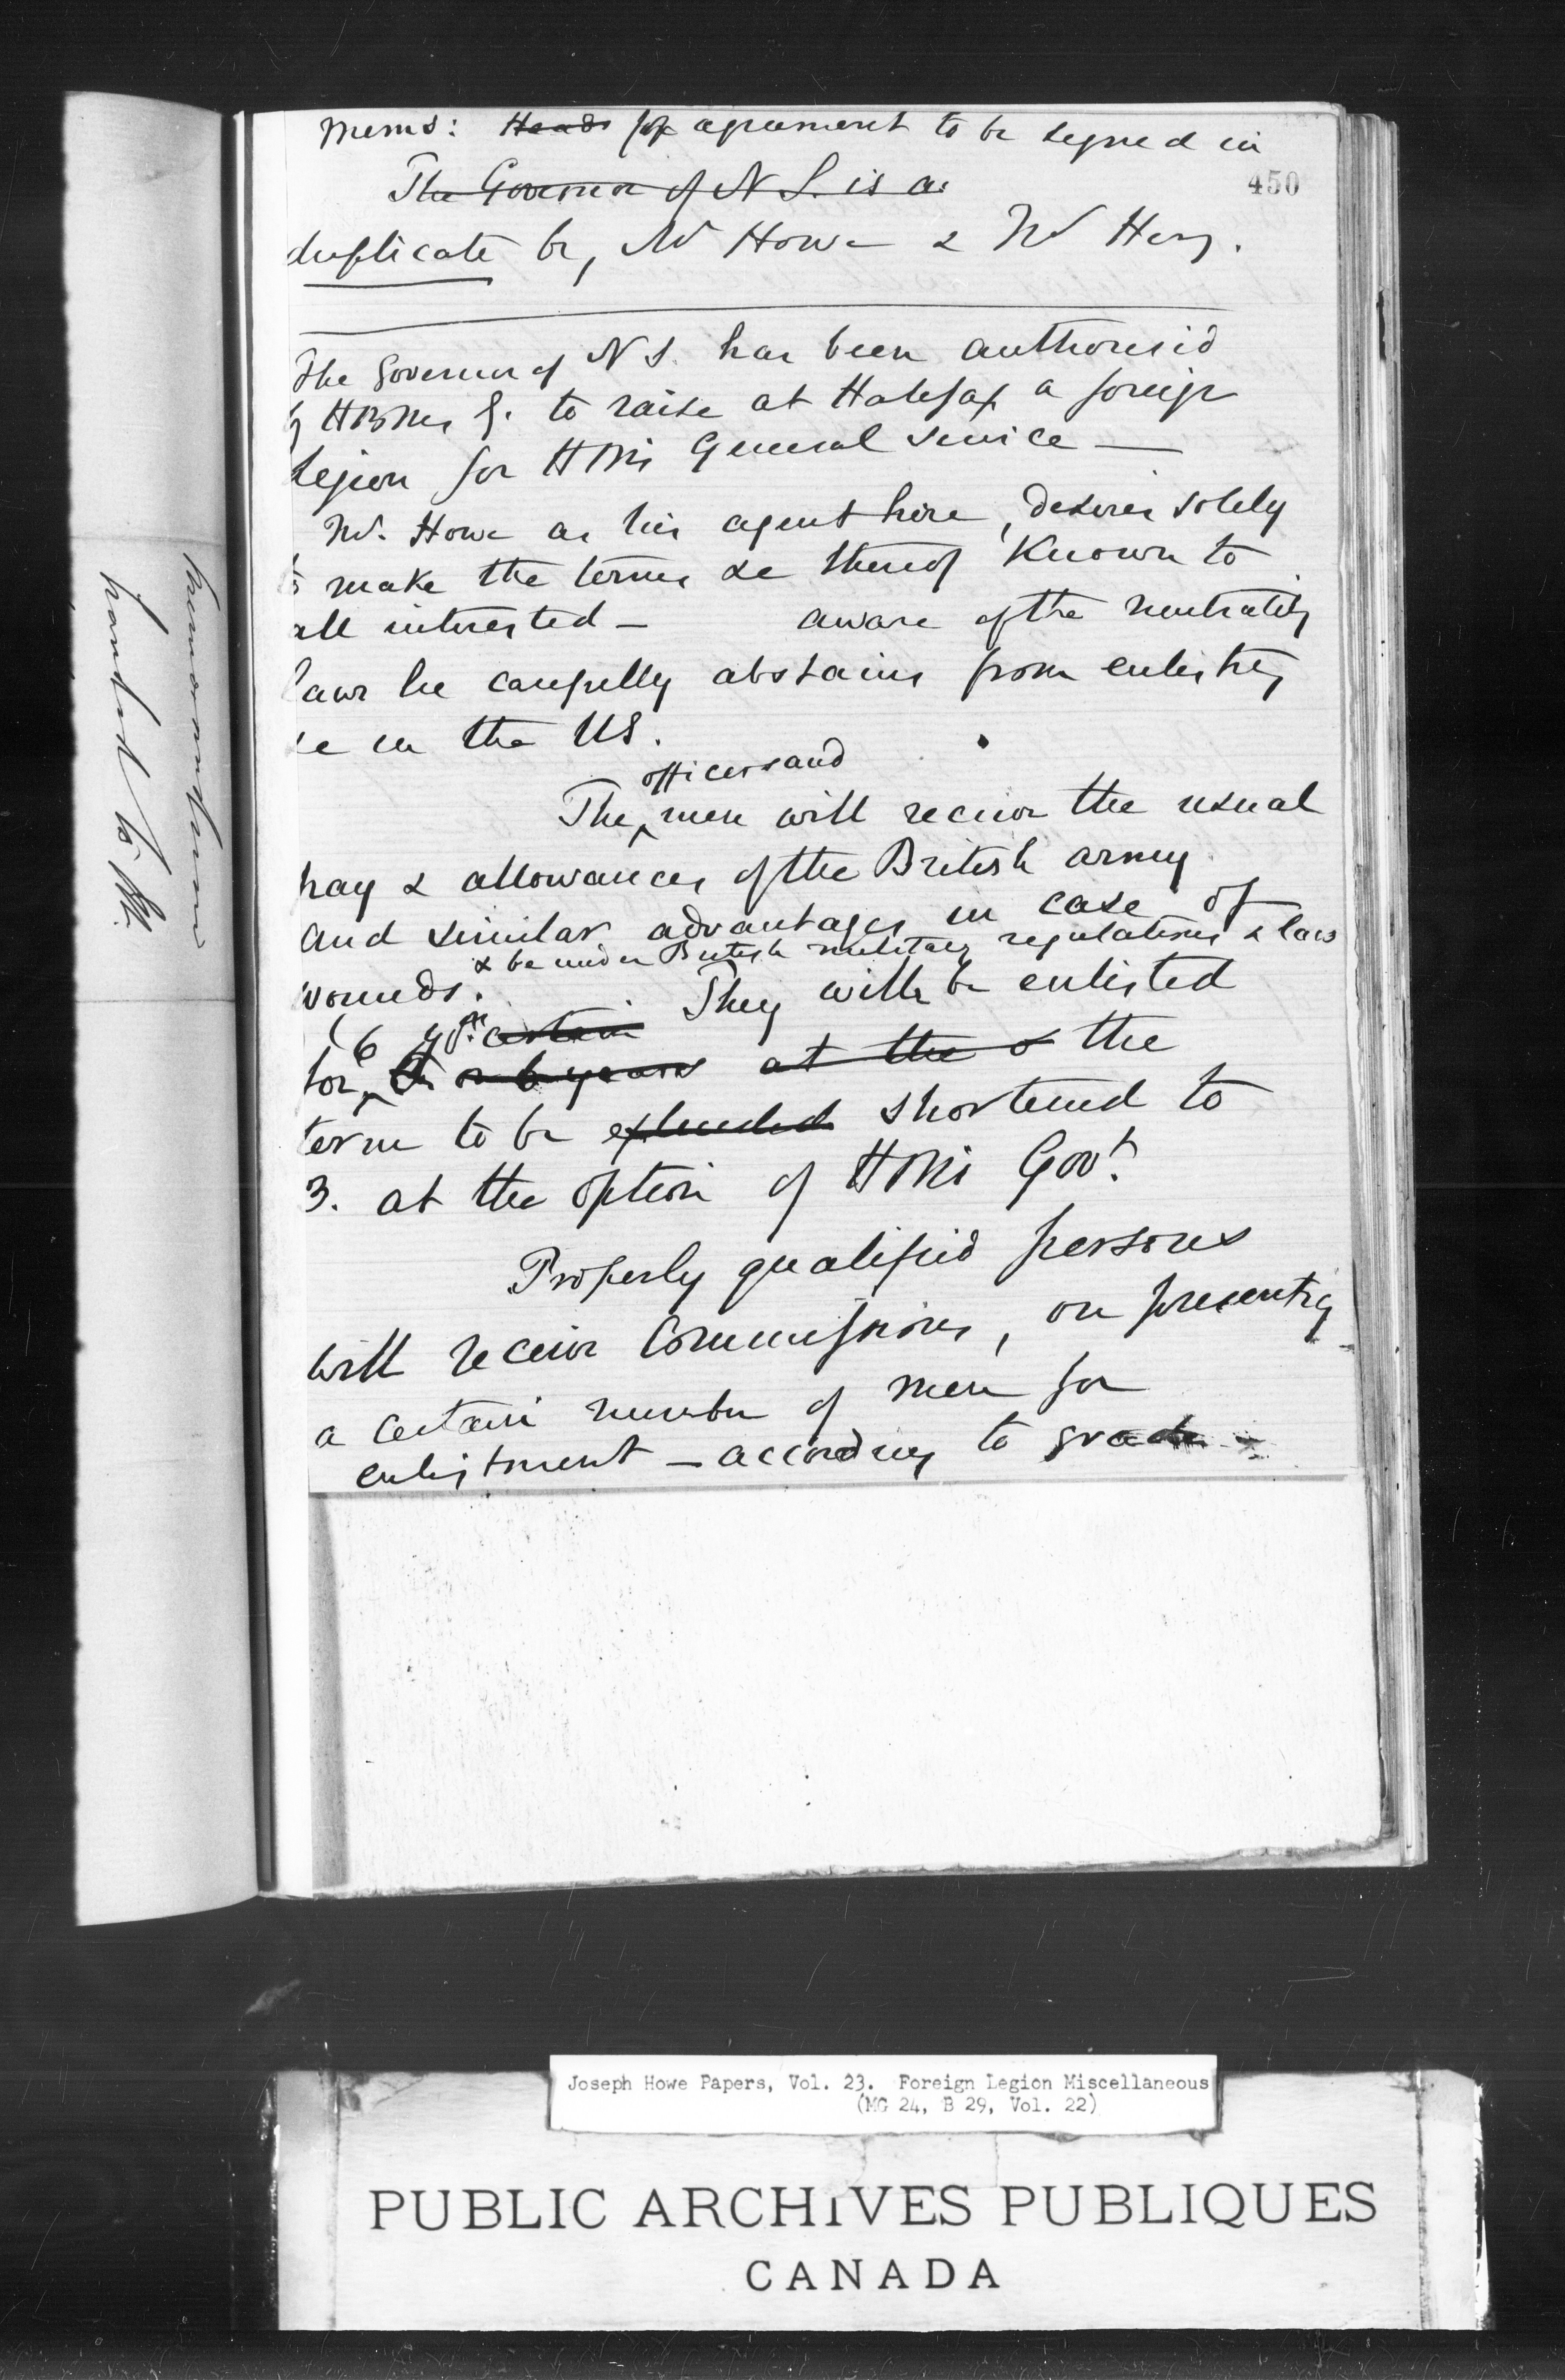 Mems: Heads for agreement to be signed in
The Governor of N S. is a
450
duplicate by Mr Howe & Mr Hery.
The Governor of N S. has been authorised
by HBMs G. to raise at Halifax a foreign
Legion for HMs General Service —
Mr. Howe as his agent here, desires solely
to make the terms &c thereof Known to
all interested — aware of the neutrality
laws he carefully abstains from enlisting
&c in the US.
officers and
The men will receive the usual
pay & allowances of the British army
and similar advantages in case of
& be under British military regulations & laws
wounds. They will be enlisted
6 yrs. certain
for or 6 years at the & the
term to be extended shortened to
3. at the option of HMs Govt.
Properly qualified persons
will receive Commissions, on presenting
a certain number of men for
enlistment — according to grade
memorandum
handed to Mr.
Joseph Howe Papers, Vol. 23. Foreign Legion Miscellaneous
(MG 24, B 29, Vol. 22)
PUBLIC ARCHIVES PUBLIQUES
CANADA